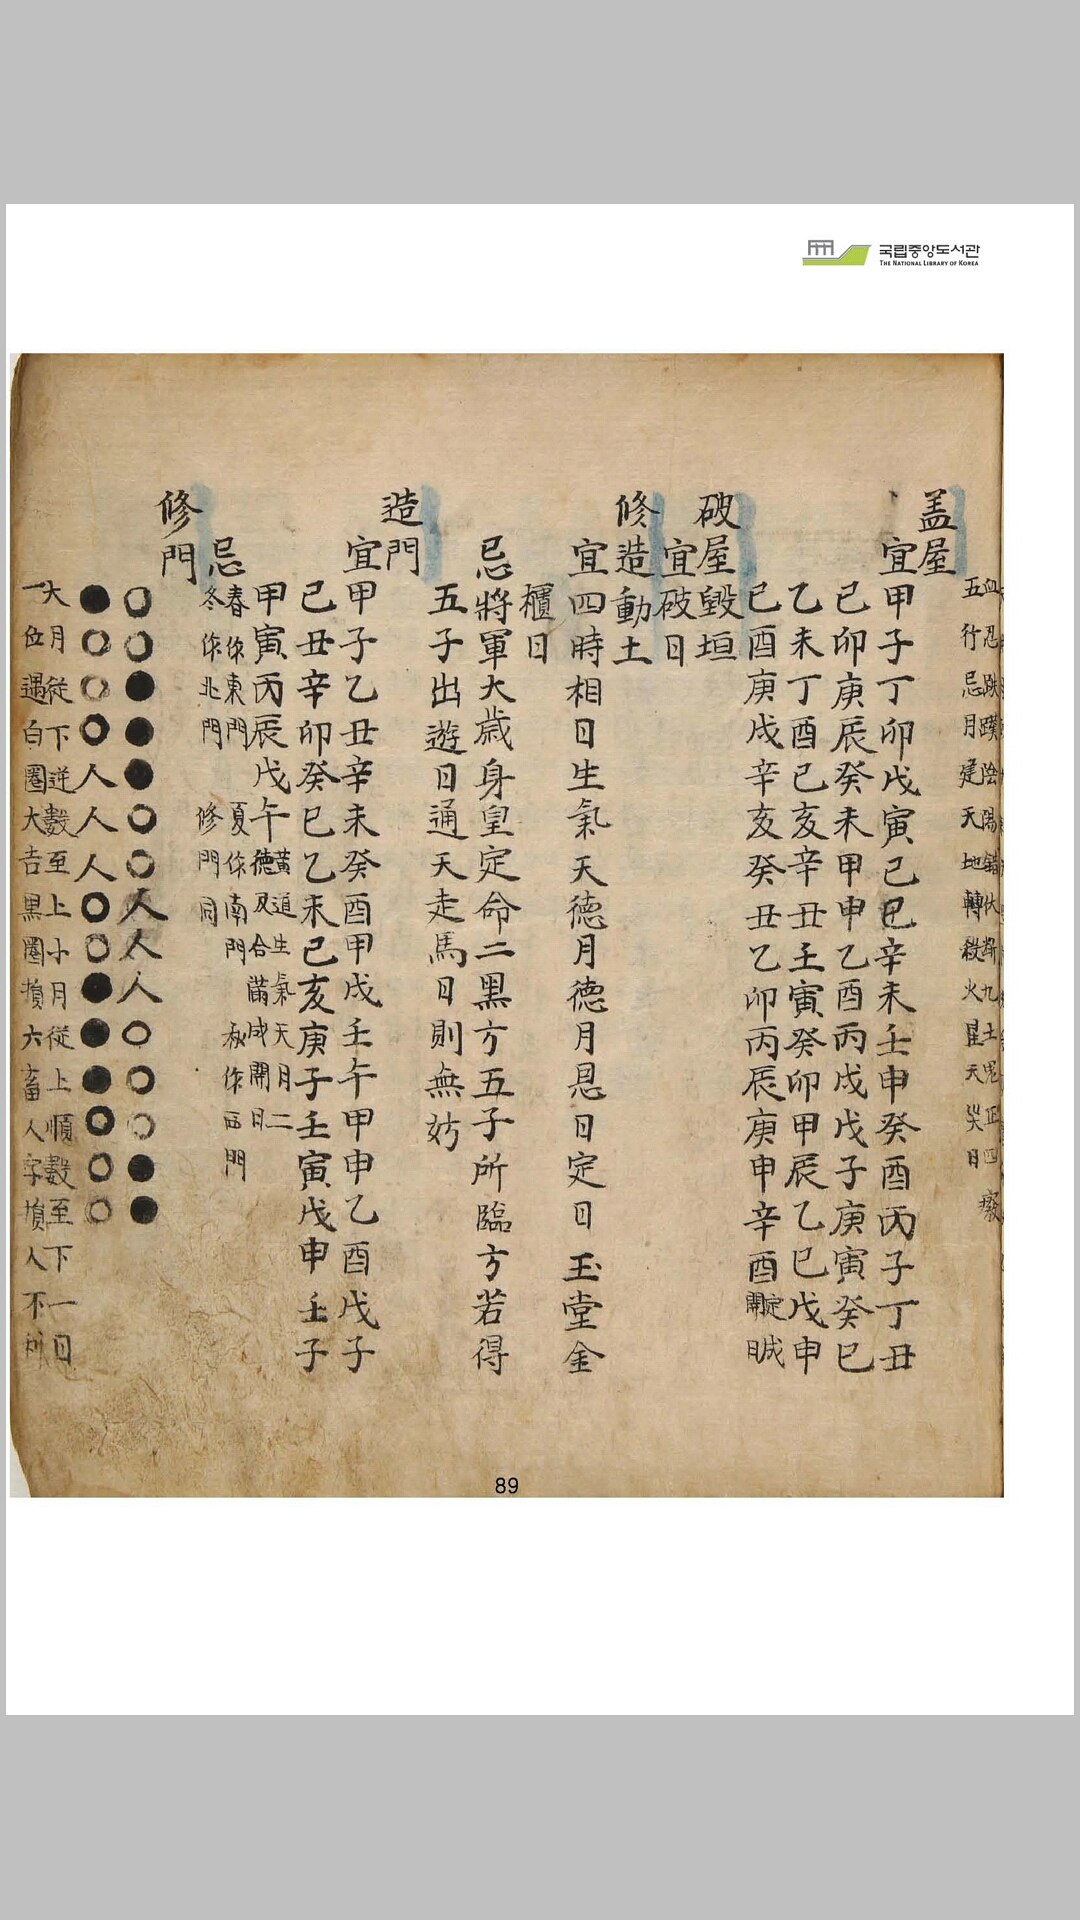 국립중앙도서관
THE NATIONAL LIBRARY OF KOREA
血忌 陰陽錯 九土鬼 正四廢
五行忌月建天地轉殺火星天災日
盖屋
宜甲子丁卯戊寅己巳辛未壬申癸酉丙子丁丑
己卯庚辰癸未甲申乙酉丙戌戊子庚寅癸巳
乙未丁酉己亥辛丑壬寅癸卯甲辰乙巳戊申
己酉庚戌辛亥癸丑乙卯丙辰庚申辛酉定成開日
破屋毀垣
宜破日
修造動土
宜四時相日生氣天德月德月恩日定日玉堂金
櫃日
忌將軍大歲身皇定命二黑方五子所臨方若得
五子出遊日通天走馬日則無妨
造門
宜甲子乙丑辛未癸酉甲戌壬午甲申乙酉戊子
己丑辛卯癸巳乙未己亥庚子壬寅戊申壬子
甲寅丙辰戊午黃道生氣天月二
德及合滿成開日
忌春作東門 夏作南門 秋作西門
冬作北門 修門同
修門
○○●●●○○人人人○○○●●
●○○○人人人○○●●●○○○
大月從下逆數至上小月從上順數至下一日
一位遇白圈大吉黑圈損六畜人字損人不利
89